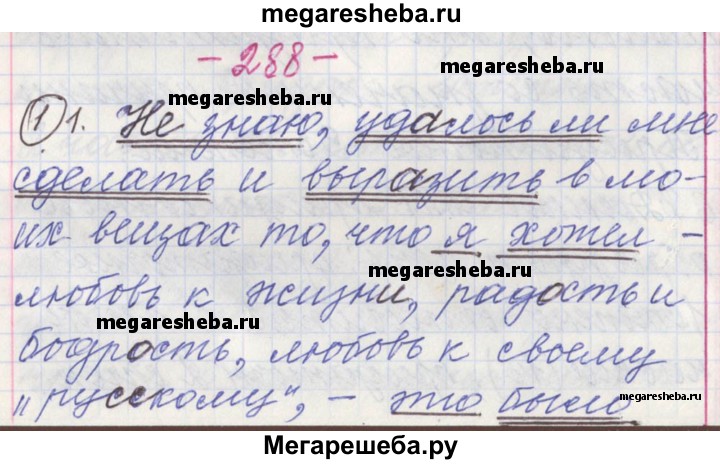 megaresheba.ru
- 288 -
megaresheba.ru
megaresheba.ru
1 1. Не знаю, удалось ли мне
сделать и выразить в мо-
их вещах то, что я хотел -
megaresheba.ru
любовь к жизни, радость и
megaresheba.ru
бодрость, любовь к своему
"русскому", - это было
megaresheba.ru
megaresheba.ru
Мегарешеба.ру